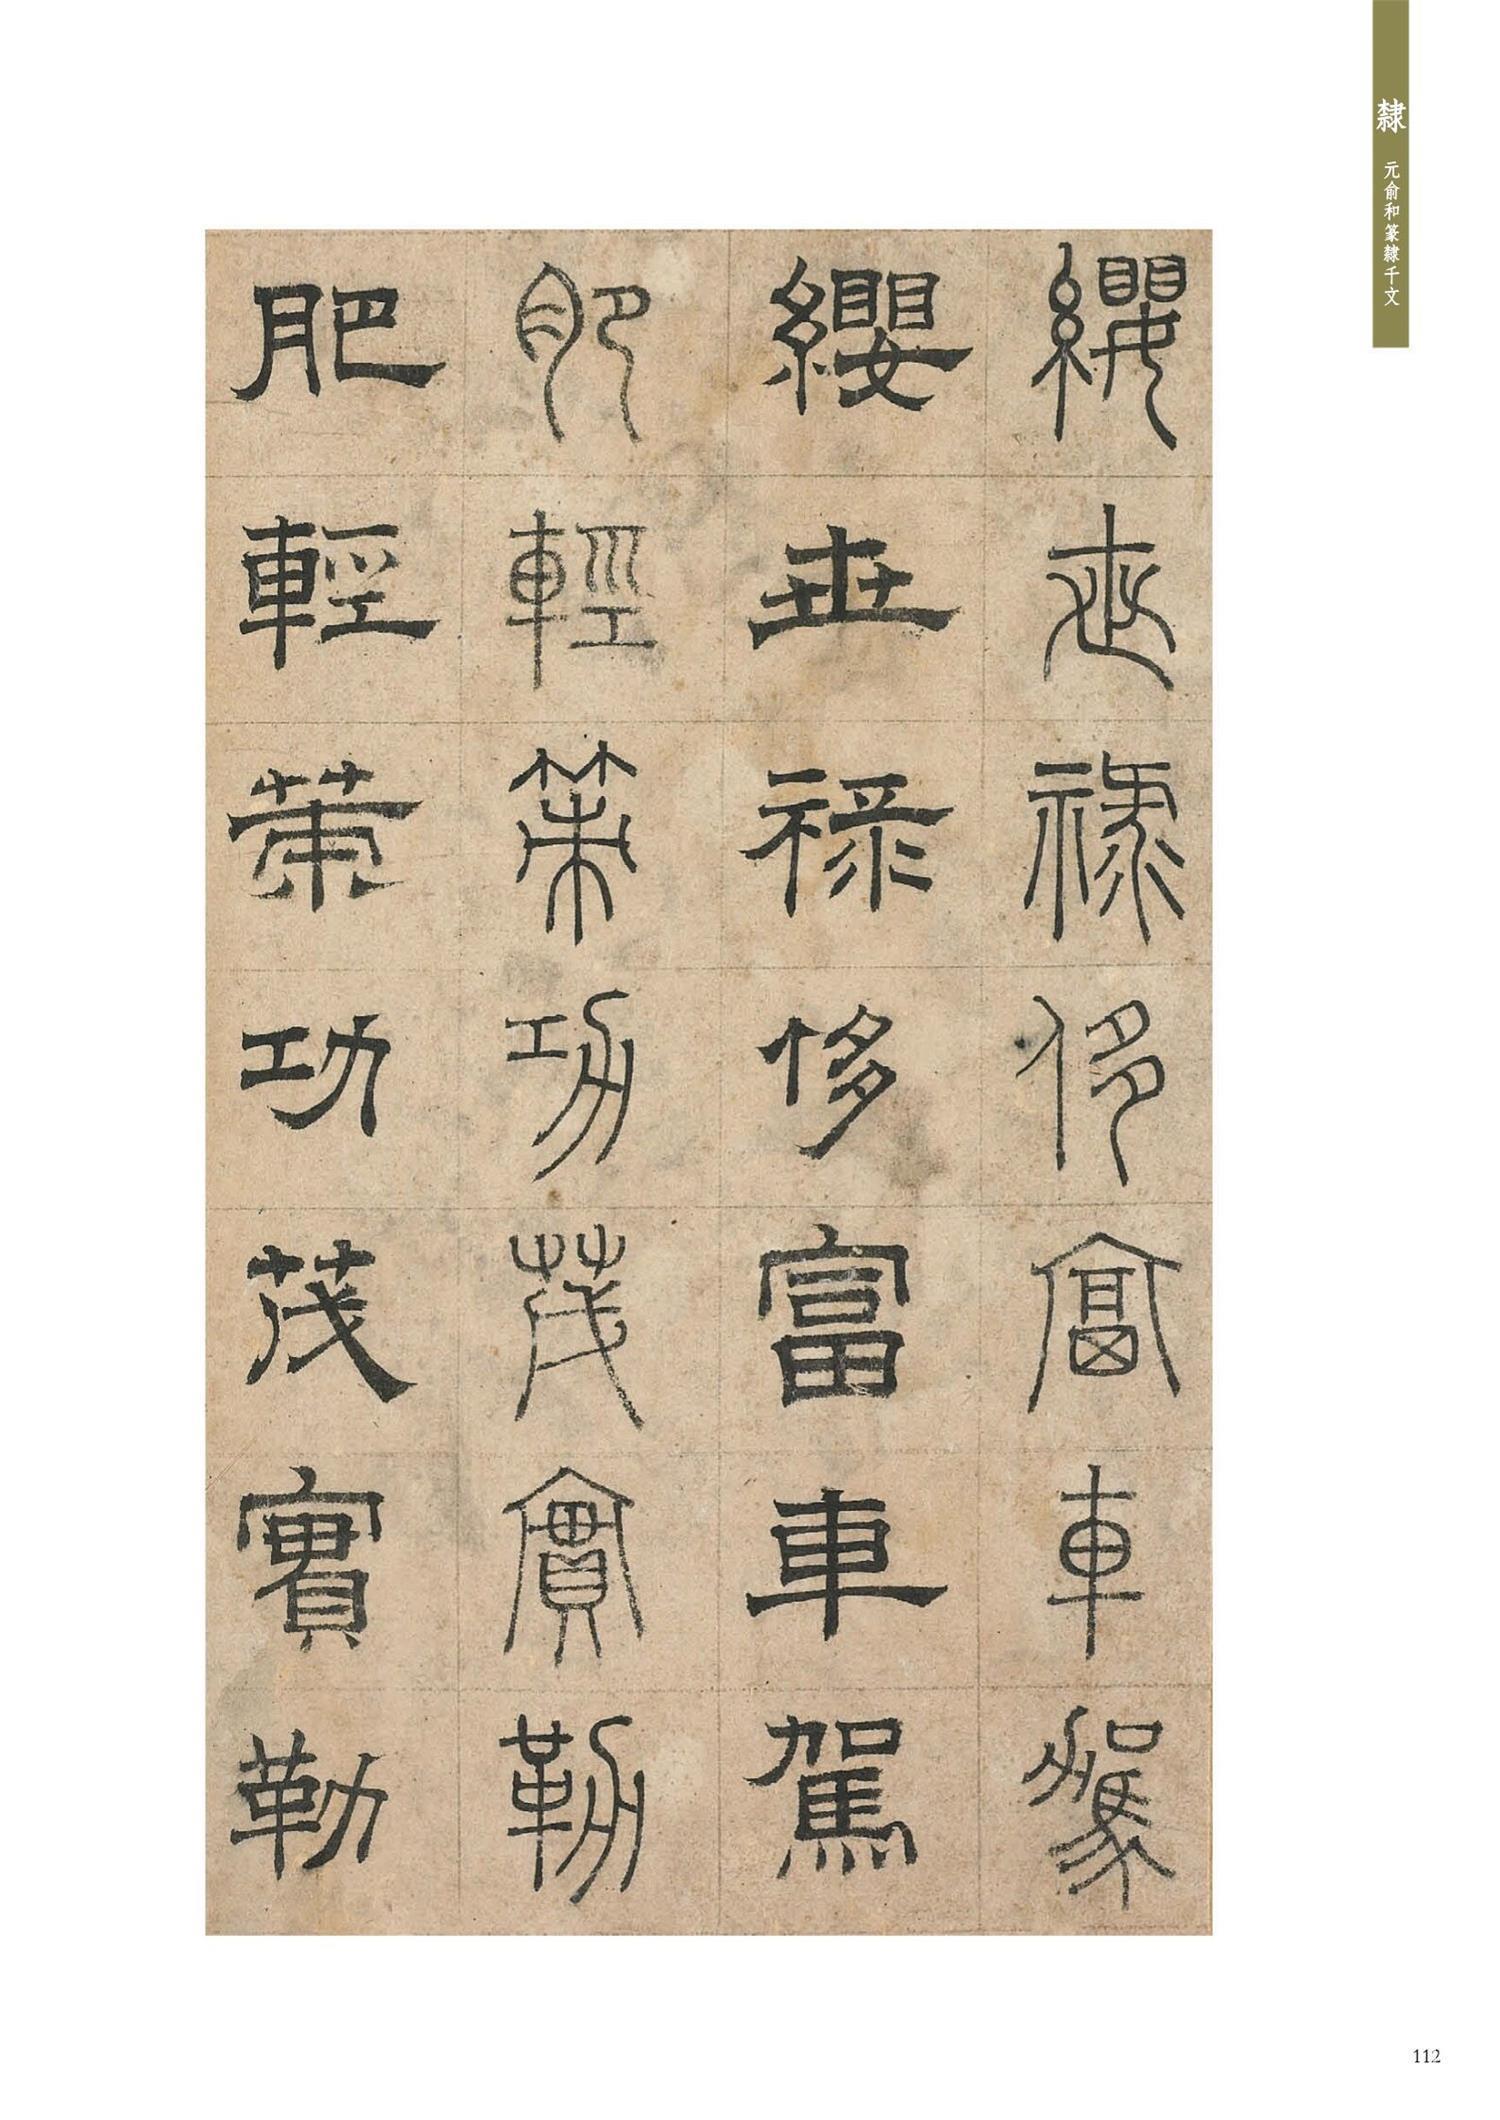 隸 元俞和篆隸千文
纓世祿侈富車駕
纓世祿侈富車駕
肥輕策功茂實勒
肥輕策功茂實勒
112